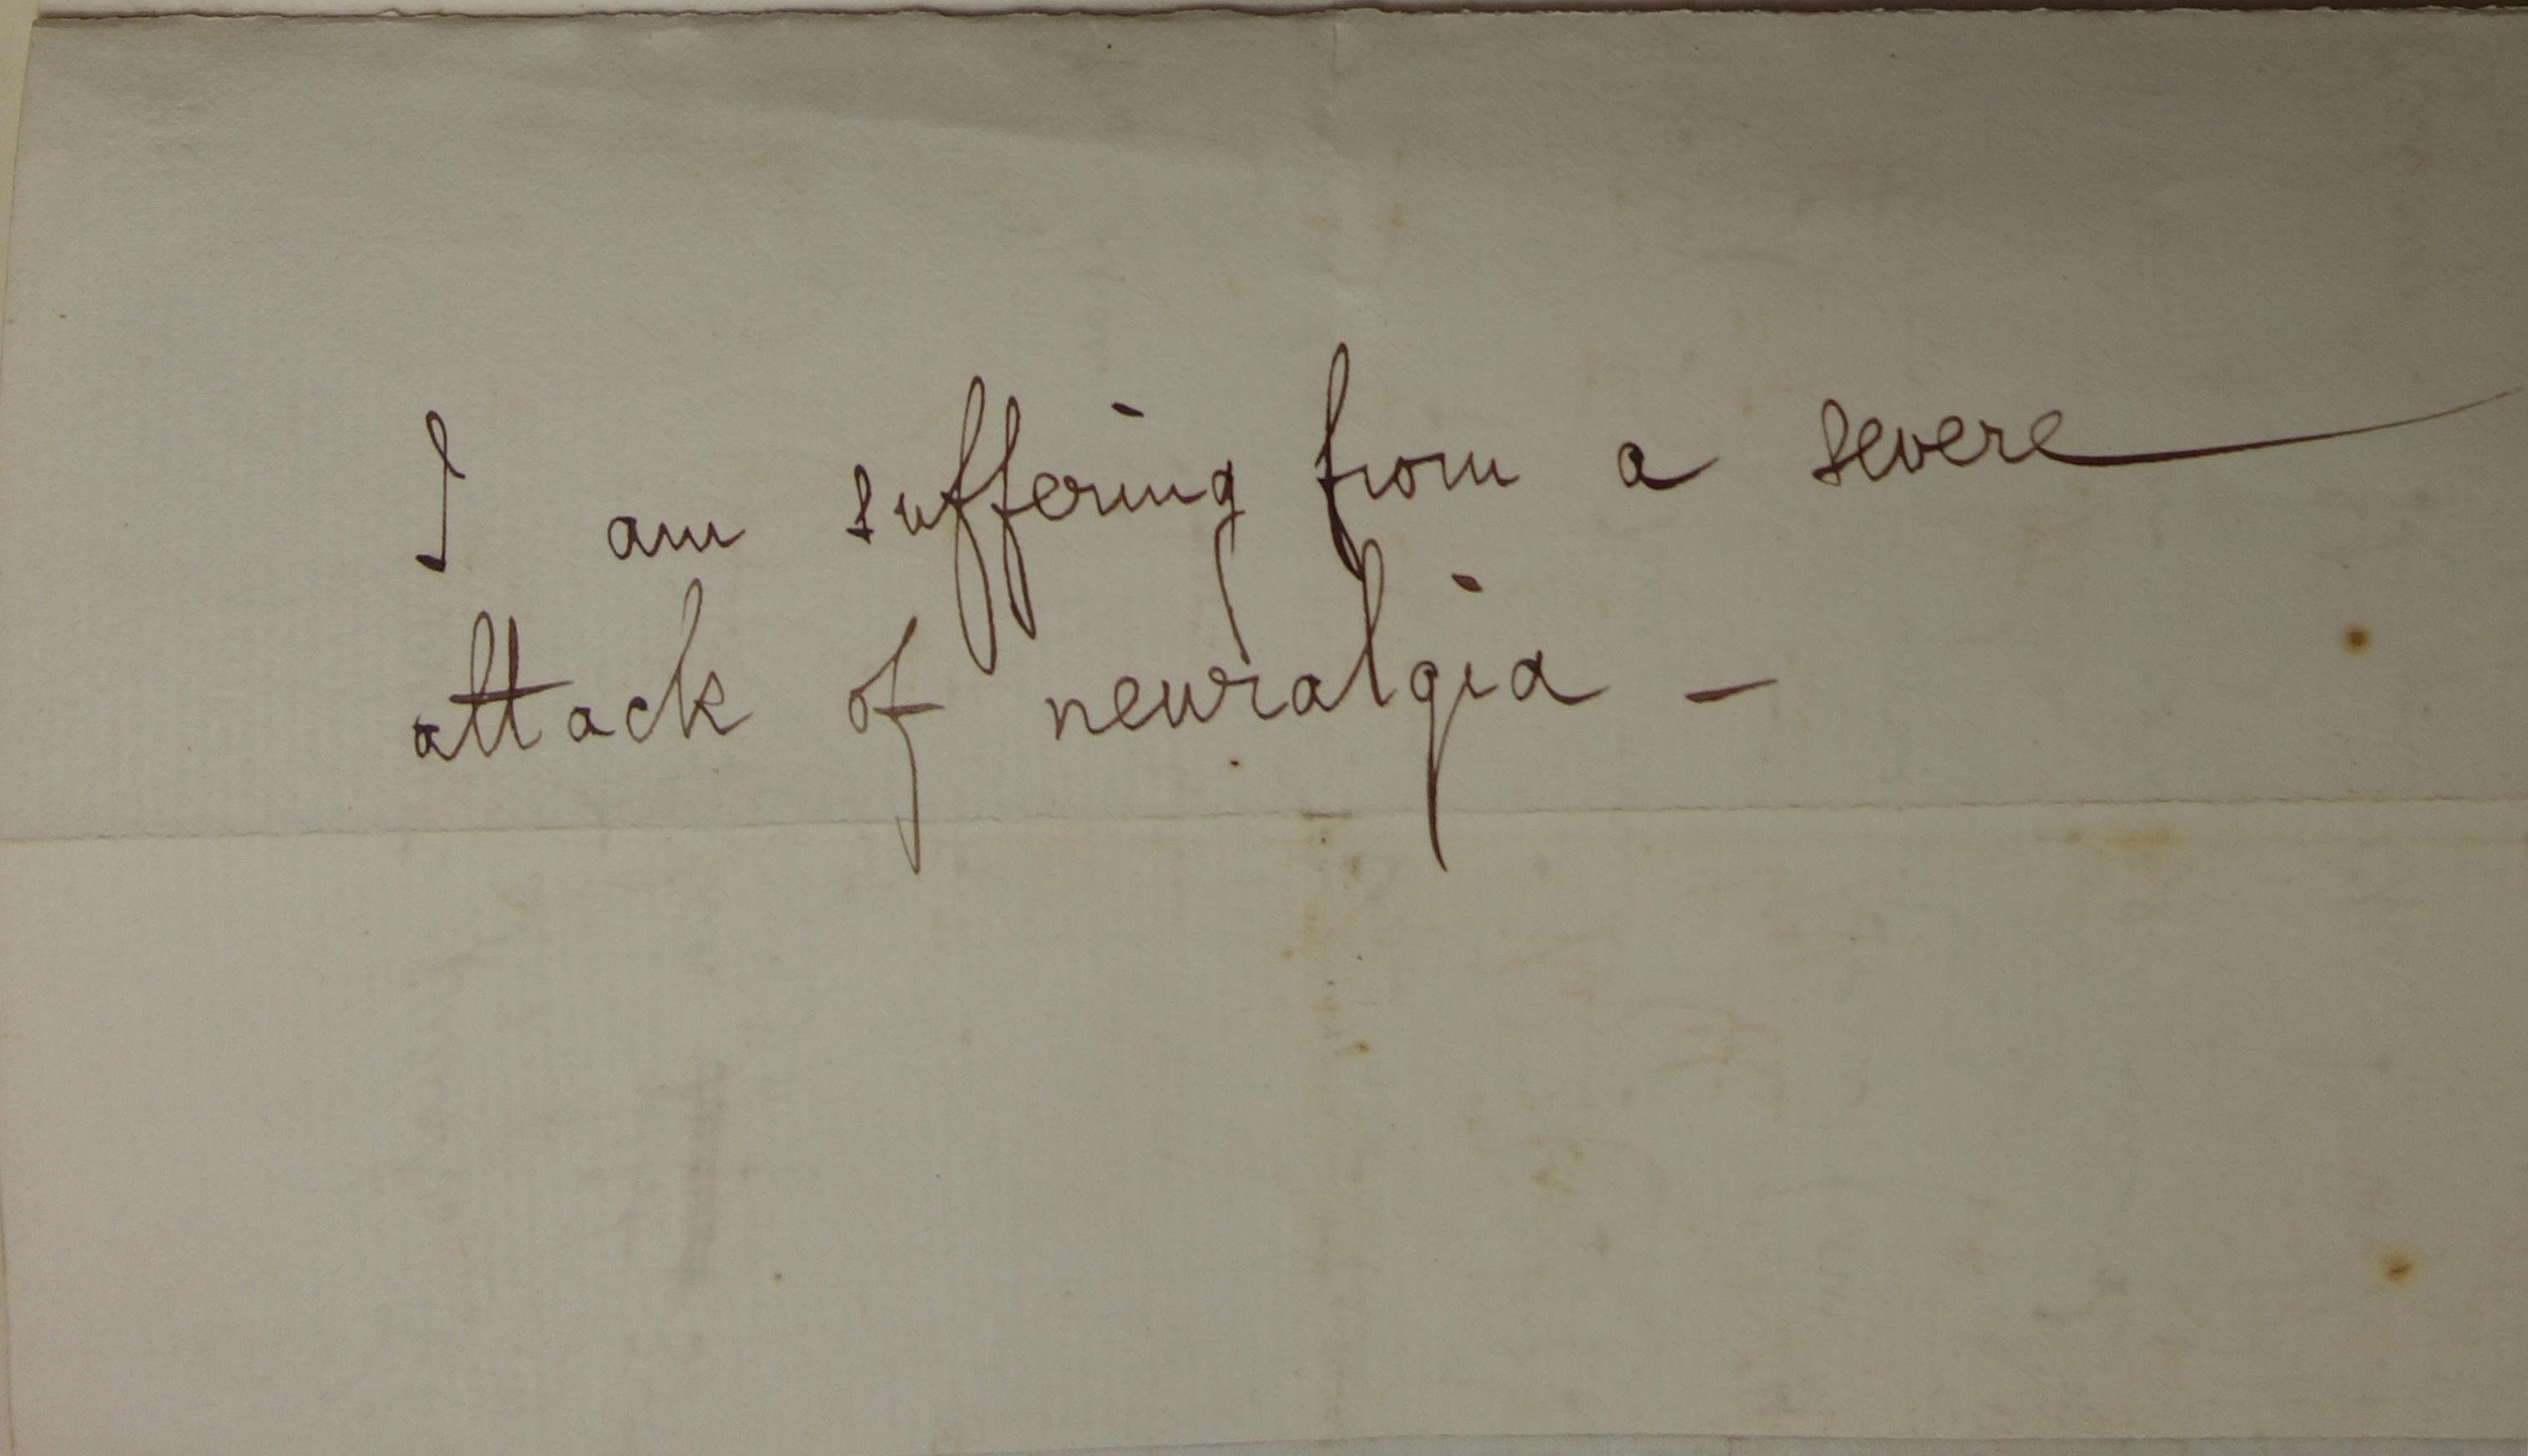 I am suffering from a severe
attack of neuralgia –